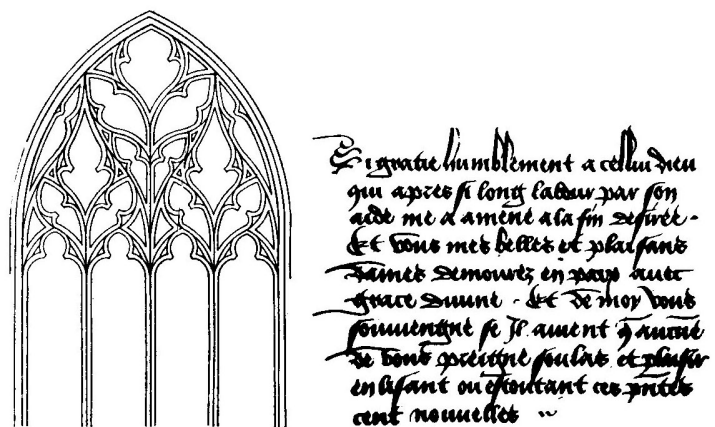 Si gratie humblement a cellui dieu
qui apres si long labeur par son
aide me a amene a la fin desiree ·
Et vous mes belles et plaisans
dames demourez en paix avec
grace divine · Et de moy vous
souviengne se Il avient q̄ aucune
de vous preigne soulas et plaisir
en lisant ou escoutant ces p̄ntes
cent nouvelles